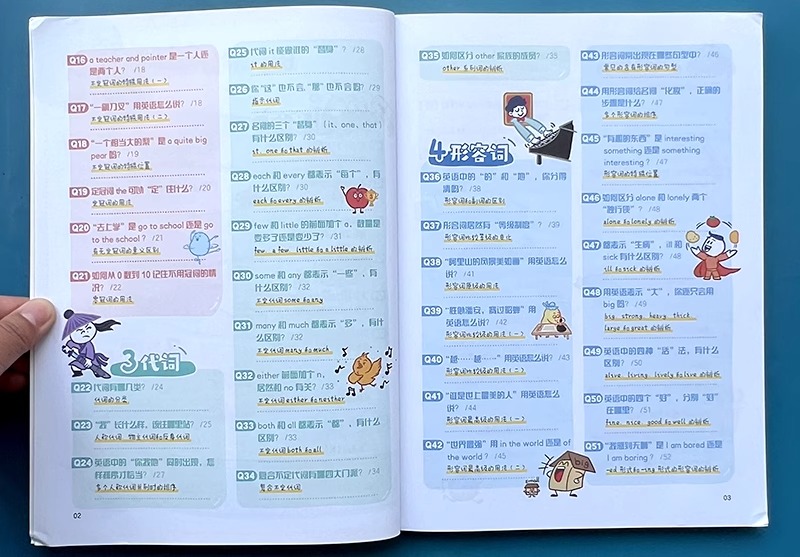 Q16 a teacher and painter 是一个人还
是两个人？ /18
不定冠词的特殊用法（一）
Q17 “一箭刀叉” 用英语怎么说？ /18
不定冠词的特殊用法（二）
Q18 “一个相当大的梨” 是 a quite big
pear 吗？ /19
不定冠词的特殊位置
Q19 定冠词 the 可以 “定” 住什么？ /20
定冠词的用法
Q20 “去上学” 是 go to school 还是 go
to the school？ /21
有无定冠词的意义区别
Q21 如何从 0 数到 10 记住不用冠词的情
况？ /22
零冠词的用法
3 代词
Q22 代词有哪几类？ /24
代词的分类
Q23 “我” 长什么样，该往哪里站？ /25
人称代词、物主代词和反身代词
Q24 英语中的 “你我他” 同时出现，怎
样排序才恰当？ /27
多个人称代词并列时的顺序
02
Q25 代词 it 能做谁的 “替身”？ /28
it 的用法
Q26 你 “这” 也不会，“那” 也不会吗？ /29
指示代词
Q27 名词的三个 “替身”（it、one、that）
有什么区别？ /30
it、one 和 that 的辨析
Q28 each 和 every 都表示 “每个”，有
什么区别？ /30
each 和 every 的辨析
Q29 few 和 little 的前面加个 a，数量是
变多了还是变少了？ /31
few、a few、little 和 a little 的辨析
Q30 some 和 any 都表示 “一些”，有
什么区别？ /32
不定代词 some 和 any
Q31 many 和 much 都表示 “多”，有什
么区别？ /32
不定代词 many 和 much
Q32 either 前面加个 n，
居然和 no 有关？ /33
不定代词 either 和 neither
Q33 both 和 all 都表示 “都”，有什么
区别？ /33
不定代词 both 和 all
Q34 复合不定代词有哪四大门派？ /34
复合不定代词
Q35 如何区分 other 家族的成员？ /35
other 系列词的辨析
4 形容词
Q36 英语中的 “的” 和 “地”，你分得
清吗？ /38
形容词和副词的区别
Q37 形容词居然有 “等级制度”？ /39
形容词比较等级的变化
Q38 “阿里山的风景美如画” 用英语怎么
说？ /41
形容词原级的用法
Q39 “胜似潘安，赛过貂蝉” 用
英语怎么说？ /42
形容词比较级的用法（一）
Q40 “越……越……” 用英语怎么说？ /43
形容词比较级的用法（二）
Q41 “谁是世上最美的人” 用英语怎么
说？ /44
形容词最高级的用法（一）
Q42 “世界最强” 用 in the world 还是 of
the world？ /45
形容词最高级的用法（二）
Q43 形容词常出现在哪些句型中？ /46
常见的含有形容词的句型
Q44 用形容词给名词 “化妆”，正确的
步骤是什么？ /47
多个形容词的顺序
Q45 “有趣的东西” 是 interesting
something 还是 something
interesting？ /47
形容词的特殊位置
Q46 如何区分 alone 和 lonely 两个
“独行侠”？ /48
alone 和 lonely 的辨析
Q47 都表示 “生病”，ill 和
sick 有什么区别？ /48
ill 和 sick 的辨析
Q48 用英语表示 “大”，你还只会用
big 吗？ /49
big、strong、heavy、thick、
large 和 great 的辨析
Q49 英语中的四种 “活” 法，有什么
区别？ /50
alive、living、lively 和 live 的辨析
Q50 英语中的四个 “好”，分别 “好”
在哪里？ /51
fine、nice、good 和 well 的辨析
Q51 “我感到无聊” 是 I am bored 还是
I am boring？ /52
-ed 形式和 -ing 形式的形容词的辨析
big
03